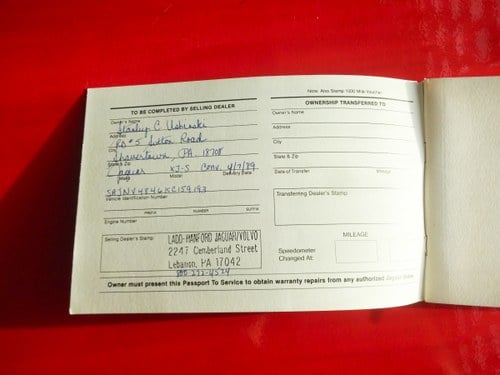 Note: Also Stamp 1000 Mile Voucher
TO BE COMPLETED BY SELLING DEALER
Owner's Name
Stanley C.
Address
RD #5 Sutton Road
City
Shavertown, PA. 18708
State & Zip
Jaguar XJ-S Conv. 4/7/89
Make Model Delivery Date
SAJNV4846KC159193
Vehicle Identification Number
PREFIX NUMBER SUFFIX
Engine Number
Selling Dealer's Stamp:
LADD-HANFORD JAGUAR/VOLVO
2247 Cumberland Street
Lebanon, PA 17042
800-272-4574
OWNERSHIP TRANSFERRED TO
Owner's Name
Address
City
State & Zip
Date of Transfer Mileage
Transferring Dealer's Stamp
MILEAGE
Speedometer
Changed At:
Owner must present this Passport To Service to obtain warranty repairs from any authorized Jaguar dealer.